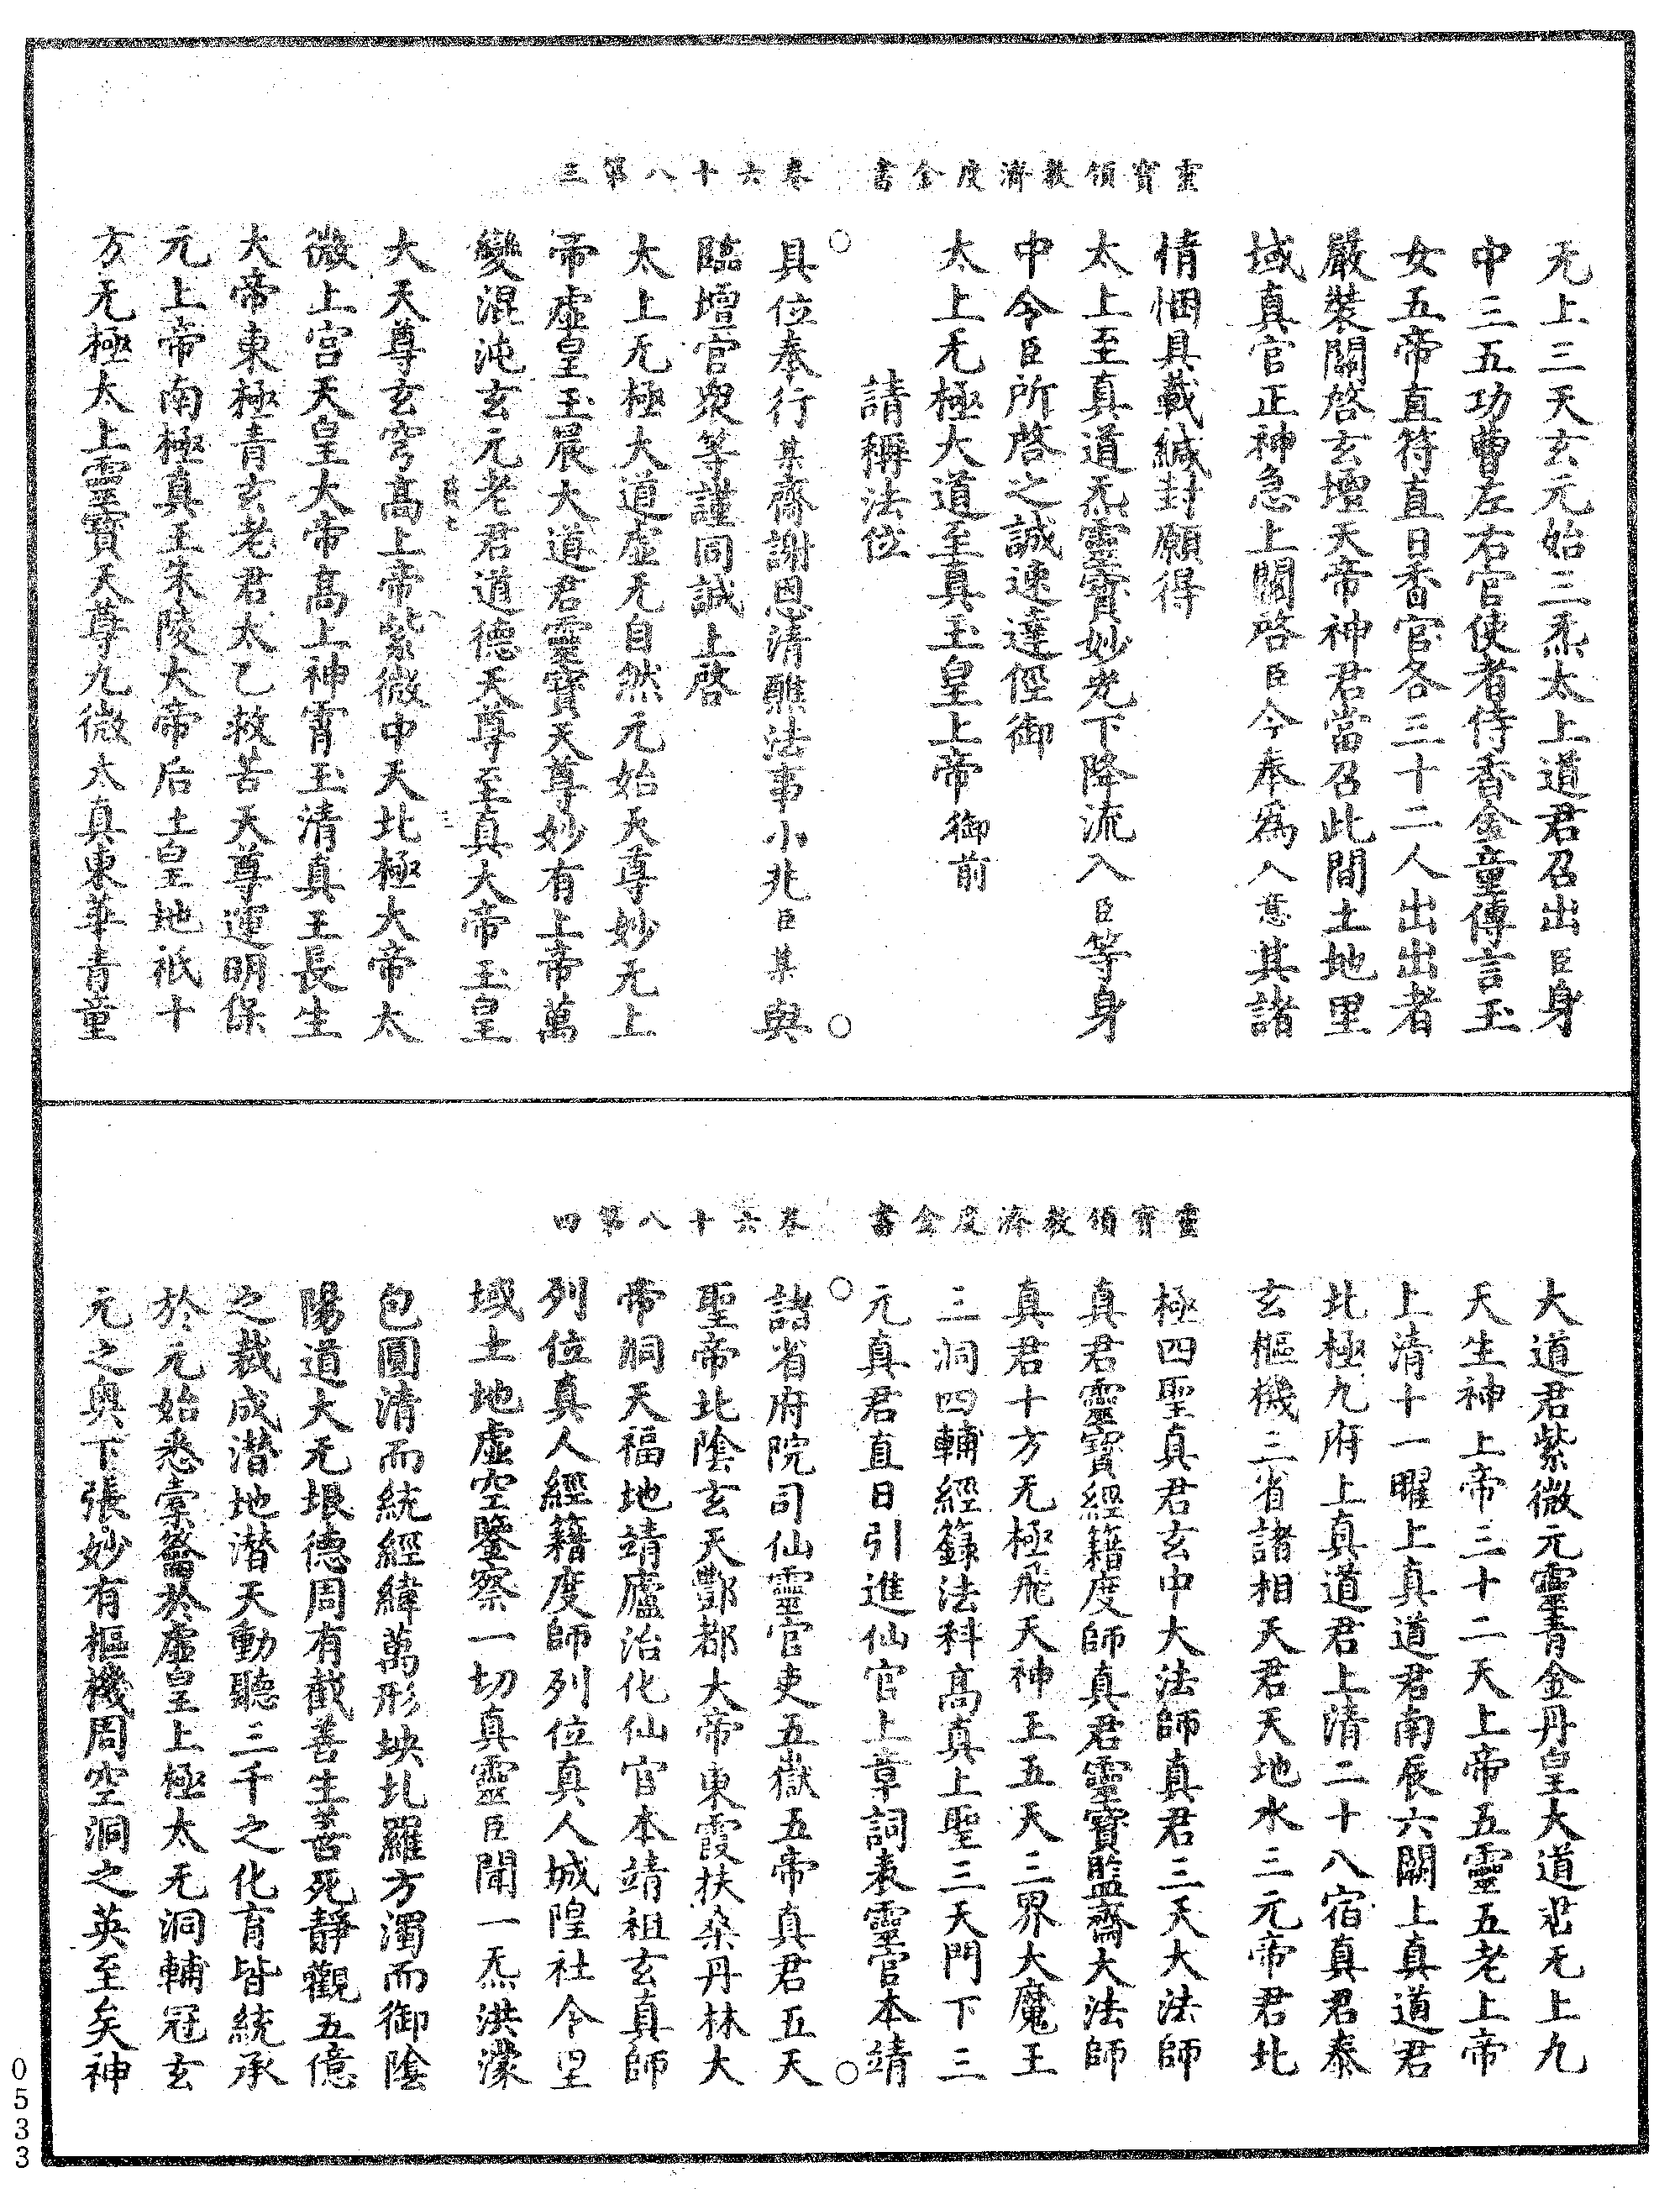 靈寶領教濟度金書　卷六十八第三
无上三天玄元始三炁太上道君召出臣身
中三五功曹左右官使者侍香金童傳言玉
女五帝直符直日香官各三十二人出出者
嚴裝關啓玄壇天帝神君當召此間土地里
域真官正神急上關啓臣今奉爲入意其諸
情悃具載緘封願得
太上至真道炁靈寶妙光下降流入臣等身
中令臣所啓之誠速達徑御
太上无極大道至真玉皇上帝御前
請稱法位
具位奉行某齋謝恩清醮法事小兆臣某與
臨壇官衆等謹同誠上啓
太上无極大道虛无自然元始天尊妙无上
帝虛皇玉晨大道君靈寶天尊妙有上帝萬
變混沌玄元老君道德天尊至真大帝玉皇
大天尊玄穹高上帝紫微中天北極大帝太
微上宮天皇大帝高上神霄玉清真王長生
大帝東極青玄老君太乙救苦天尊運明保
元上帝南極真王朱陵大帝后土皇地祇十
方无極太上靈寶天尊九微太真東華青童
靈寶領教濟度金書　卷六十八第四
大道君紫微元靈青金丹皇大道君无上九
天生神上帝三十二天上帝五靈五老上帝
上清十一曜上真道君南辰六關上真道君
北極九府上真道君上清二十八宿真君泰
玄樞機三省諸相天君天地水三元帝君北
極四聖真君玄中大法師真君三天大法師
真君靈寶經籍度師真君靈寶監齋大法師
真君十方无極飛天神王五天三界大魔王
三洞四輔經籙法科高真上聖三天門下三
元真君直日引進仙官上章詞表靈官本靖
諸省府院司仙靈官吏五嶽五帝真君五天
聖帝北陰玄天酆都大帝東霞扶桑丹林大
帝洞天福地靖廬治化仙官本靖祖玄真師
列位真人經籍度師列位真人城隍社令里
域土地虛空鑒察一切真靈臣聞一炁洪濛
包圓清而統經緯萬形坱圠羅方濁而御陰
陽道大无垠德周有截善生善死靜觀五億
之裁成潜地潜天動聽三千之化育皆統承
於元始悉橐籥於虛皇上極太无洞輔冠玄
元之奥下張妙有樞機周空洞之英至矣神
0533